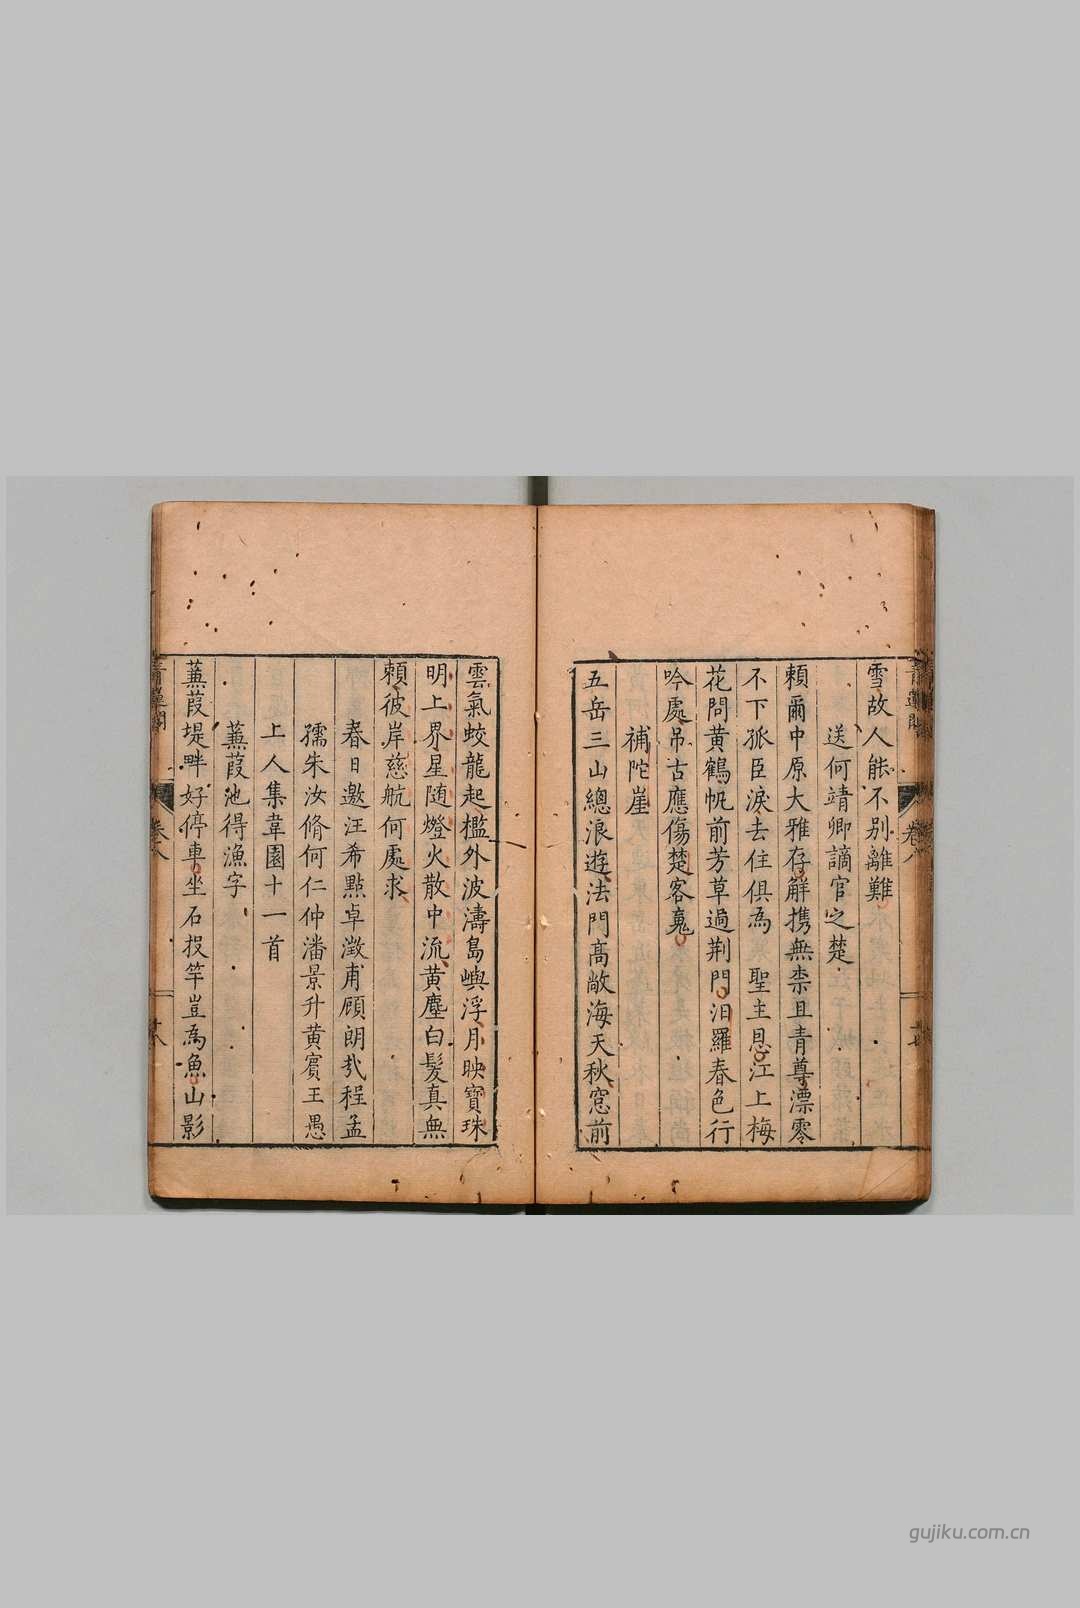 雪故人能不別離難
送何靖卿謫官之楚
賴爾中原大雅存解携無柰且青尊漂零
不下孤臣淚去住俱為聖主恩江上梅
花問黃鶴帆前芳草過荆門汨羅春色行
吟處吊古應傷楚客䰟
補陀崖
五岳三山總浪遊法門高敞海天秋窓前
雲氣蛟龍起檻外波濤島嶼浮月映寶珠
明上界星随燈火散中流黃塵白髮真無
賴彼岸慈航何處求
春日邀汪希點卓澂甫顧朗㢤程孟
孺朱汝脩何仁仲潘景升黄賓王愚
上人集葦園十一首
蒹葭池得漁字
蒹葭堤畔好停車坐石投竿豈為魚山影
卷八
卷八
gujiku.com.cn